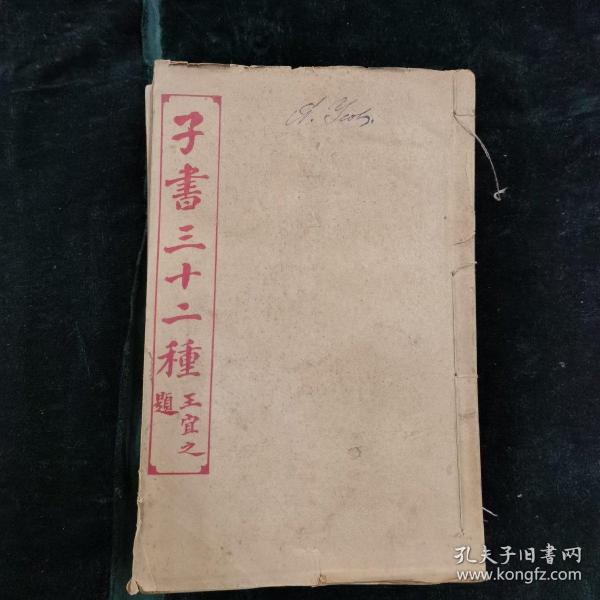 子書三十二種
王宜之
題
孔夫子旧書网
www.kongfz.com